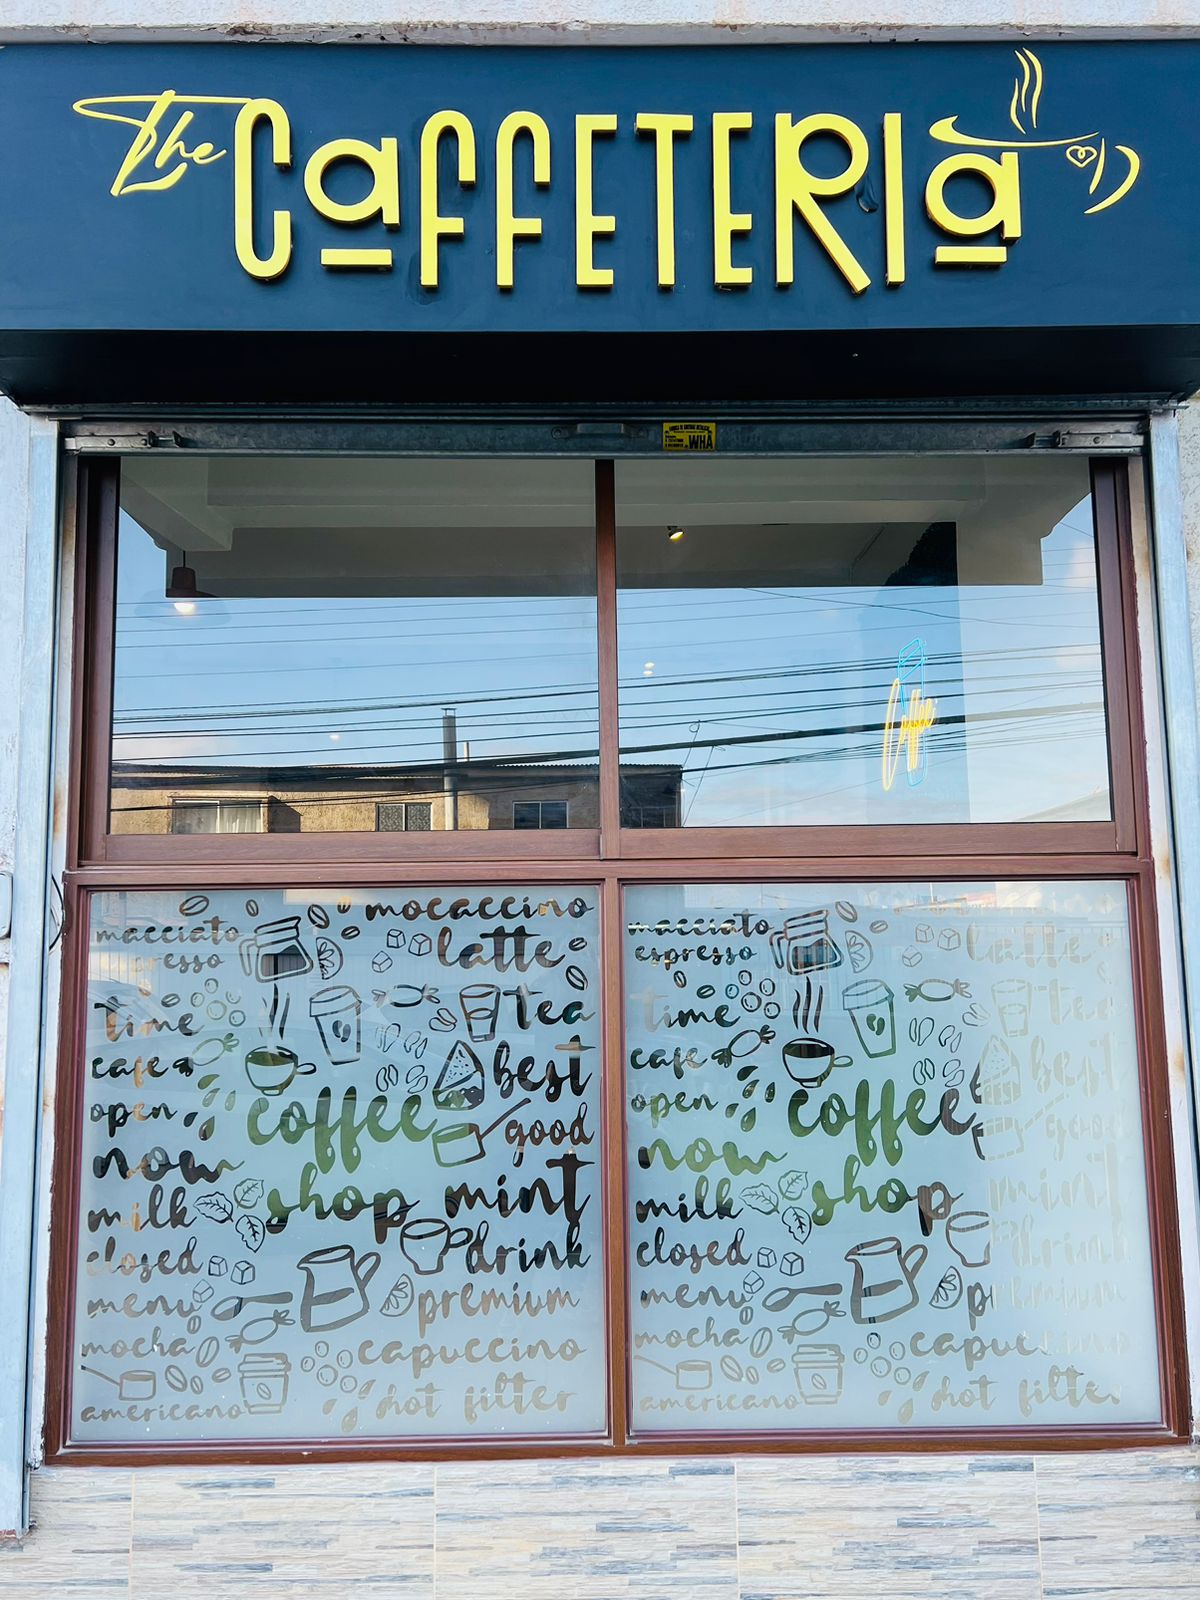 The CaFFETERIa
WHA
Coffee
mocaccino
macciato
latte
time
tea
cafe
best
open
coffee
good
now
shop
mint
milk
closed
drink
menu
premium
mocha
capuccino
americano
hot filter
macciato
espresso
latte
time
tea
cafe
best
open
coffee
good
now
shop
mint
milk
closed
drink
menu
premium
mocha
capuccino
americano
hot filter